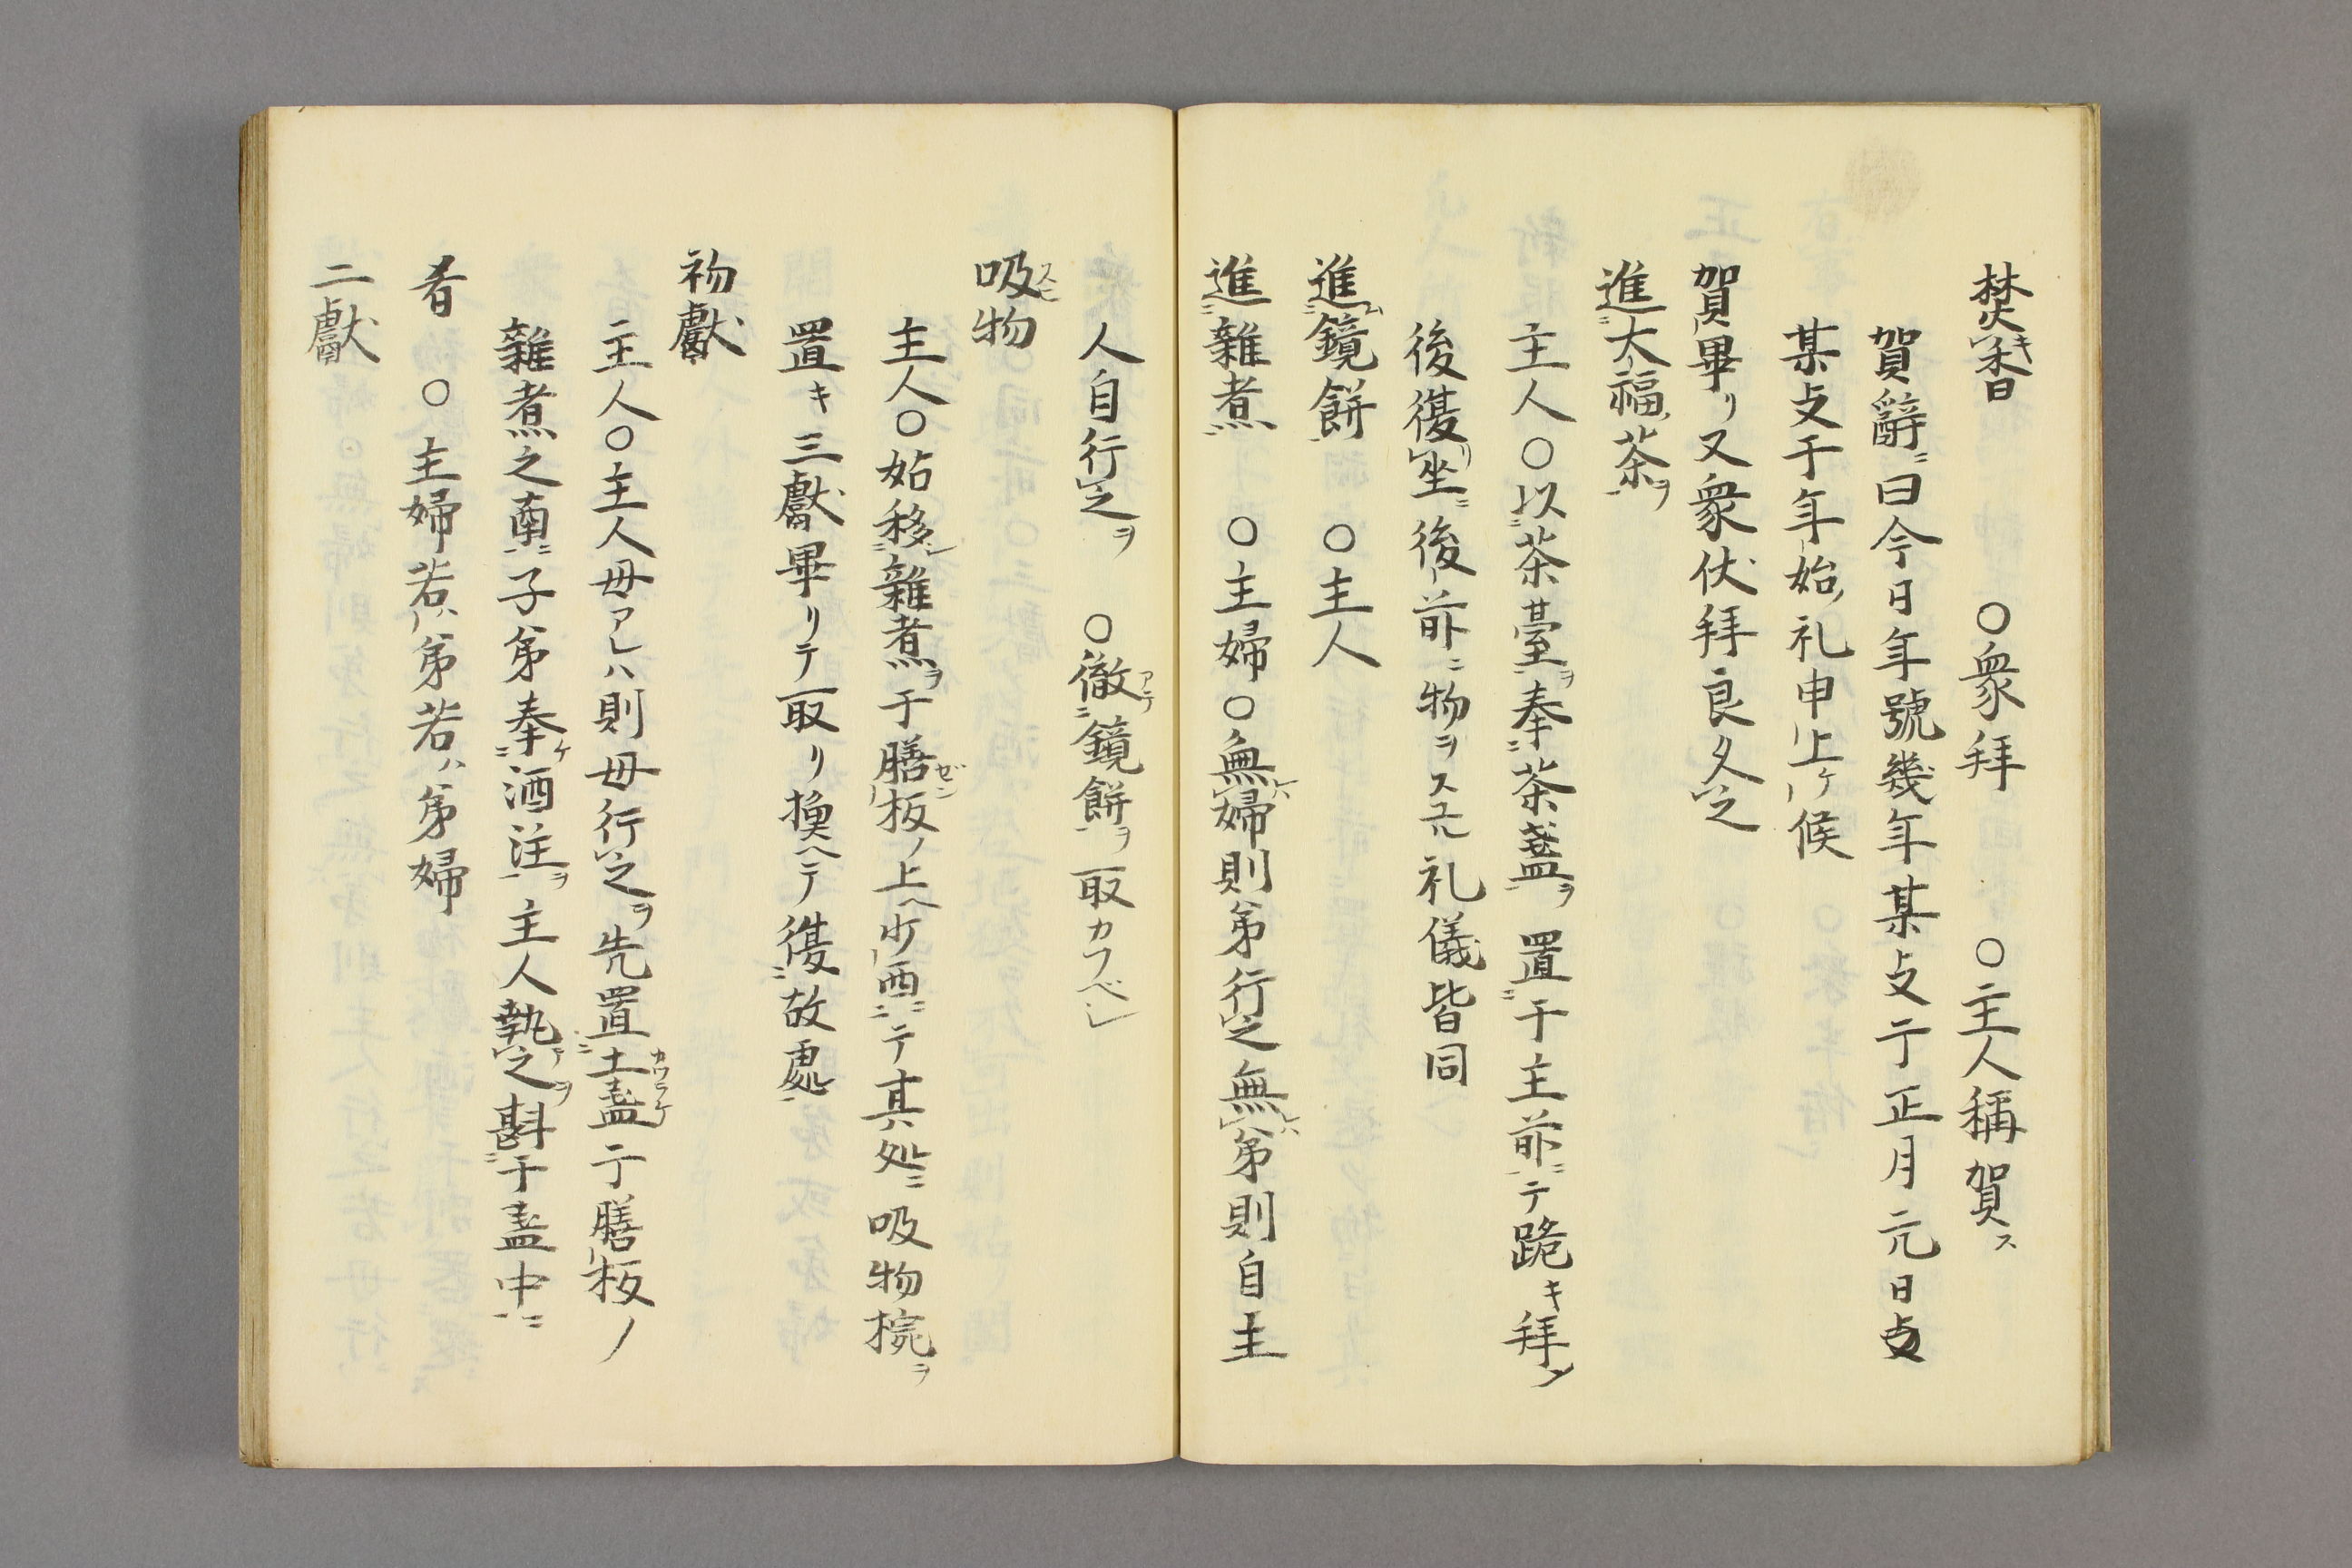 焚キ香 〇衆拜 〇主人稱賀ス
賀辭ニ曰今日年號幾年某支于正月元日支
某支于年始ノ礼申上ケ候
賀畢リ又衆伏拜良久之
進大福茶ヲ
主人〇以茶臺ヲ奉茶盞ヲ置于主前ニテ跪キ拜シ
後復坐ニ後前ニ物ヲスユル礼儀皆同
進ム鏡餅 〇主人
進雜煮 〇主婦〇無レハ婦則弟行之無レハ弟則自主
人自行之ヲ 〇徹アテ鏡餅ヲ取カフベシ
吸スヒ物
主人〇始移シ雜煮ヲ于膳ゼン板ノ上ヘ少西ニテ其ノ処ニ吸物椀ヲ
置キ三獻畢リテ取リ換ヘテ復故處ニ
初獻
主人〇主人母アレハ則母行之ヲ先置土盞カワラケ于膳板ノ
雜煮之南ニ子弟奉ケ酒注ヲ主人執テ之ヲ斟于盞中ニ
肴 〇主婦若ハ弟若ハ弟婦
二獻